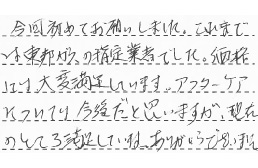 今回初めてお願いしました。これまで
は東邦ガスの指定業者でした。価格
には大変満足しています。アフターケア
については今後だと思いますが、現在
のところ満足しています。ありがとうございました